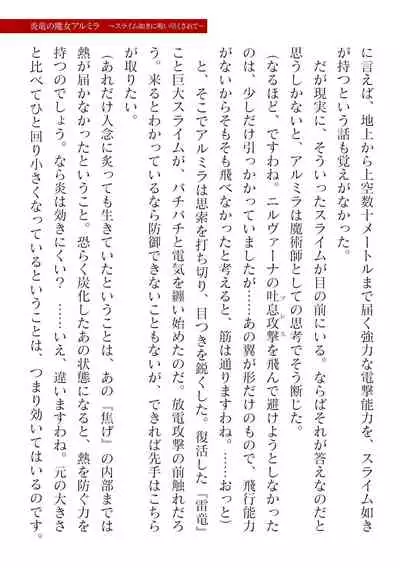 炎竜の魔女アルミラ　～スライム如きに喰い尽くされて～
に言えば、地上から上空数十メートルまで届く強力な電撃能力を、スライム如き
が持つという話も覚えがなかった。
だが現実に、そういったスライムが目の前にいる。ならばそれが答えなのだと
思うしかないと、アルミラは魔術師としての思考でそう断じた。
（なるほど、ですわね。ニルヴァーナの吐息攻撃を飛んで避けようとしなかった
ブレス
のは、少しだけ引っかかっていましたが……あの翼が形だけのもので、飛行能力
がないからそもそも飛べなかったと考えると、筋は通りますわね。……おっと）
と、そこでアルミラは思索を打ち切り、目つきを鋭くした。復活した『雷竜』
こと巨大スライムが、バチバチと電気を纏い始めたのだ。放電攻撃の前触れだろ
う。来るとわかっているなら防御できないこともないが、できれば先手はこちら
が取りたい。
（あれだけ入念に炙っても生きていたということは、あの『焦げ』の内部までは
熱が届かなかったということ。恐らく炭化したあの状態になると、熱を防ぐ力を
持つのでしょう。なら炎は効きにくい？　……いえ、違いますわね。元の大きさ
と比べてひと回り小さくなっているということは、つまり効いてはいるのです。